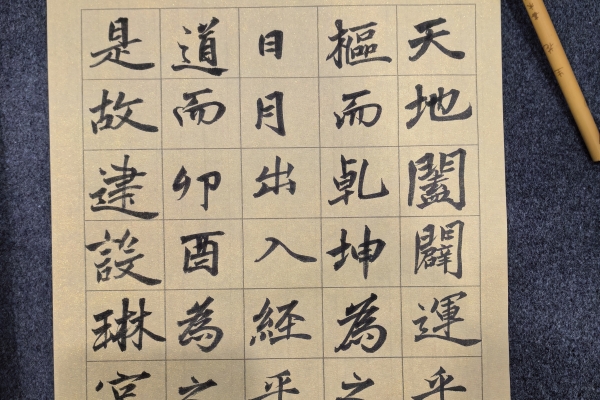 天地闔闢運乎
樞而乹坤為之
日月出入経乎
道而卯酉為之
是故建設琳宮